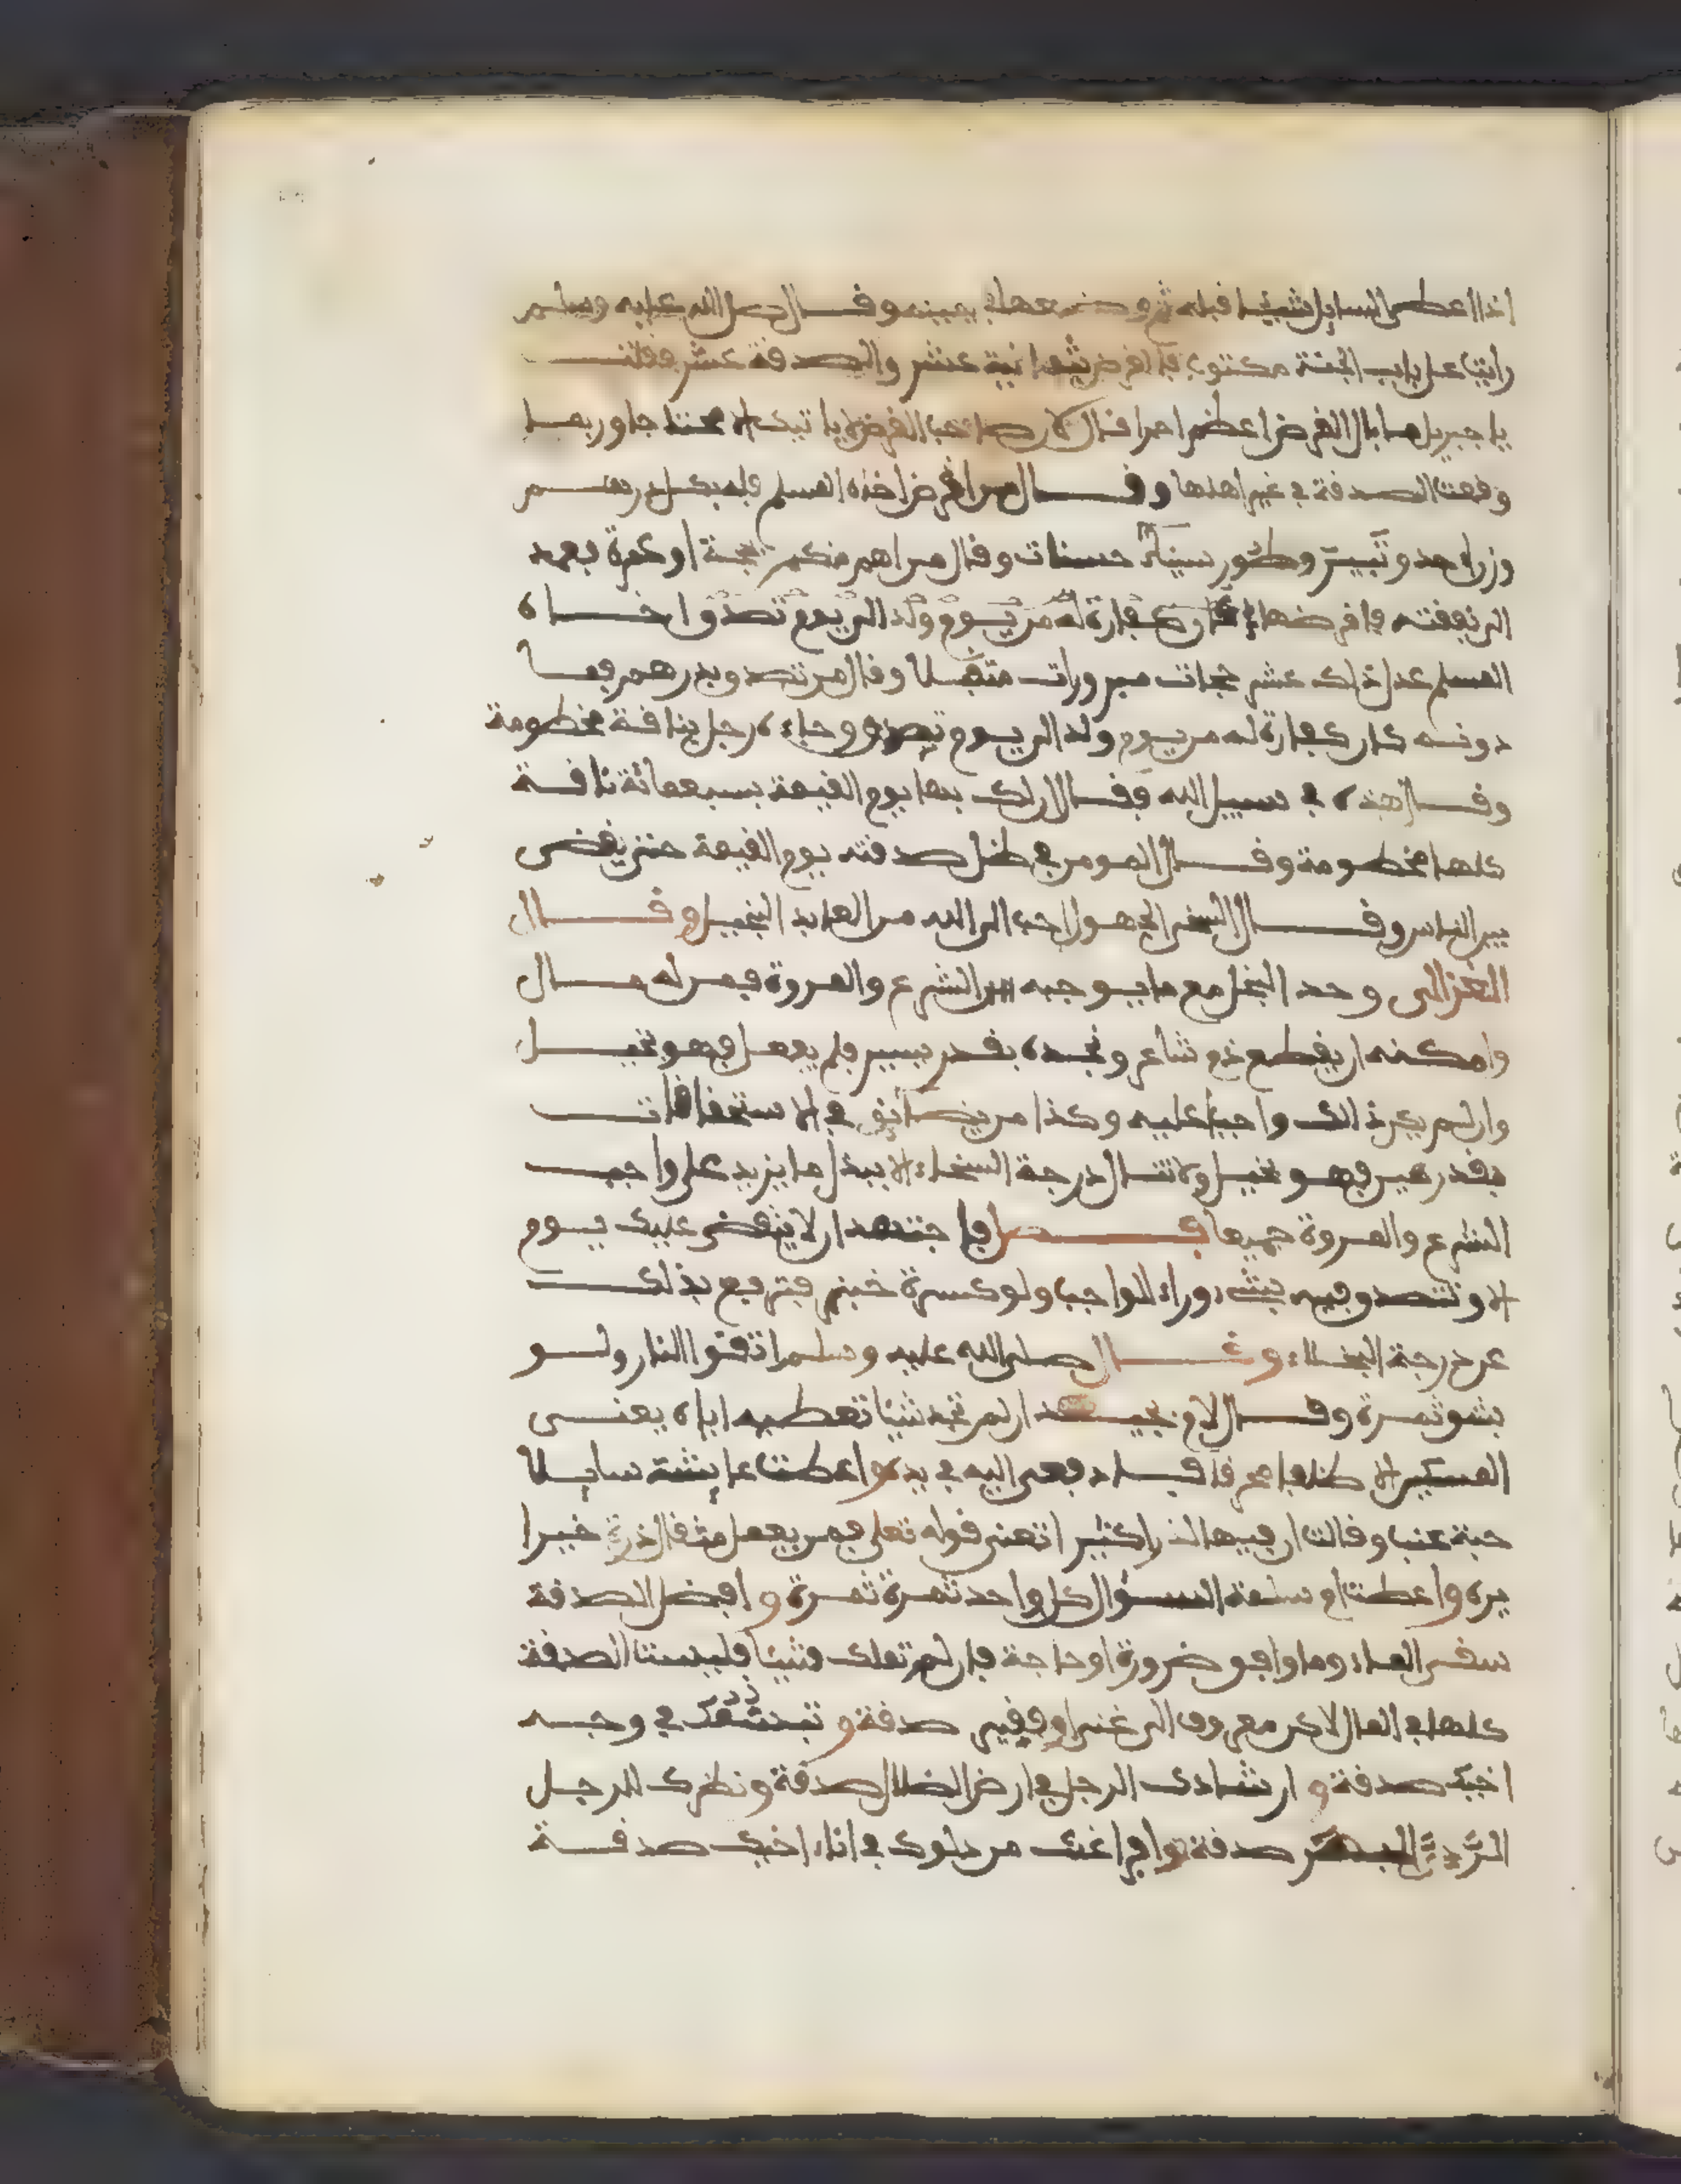 اذا اعطى السايل شيئا قبله ثم وضعها في يمينه وقال صلى الله عليه وسلم
رايت على باب الجنة مكتوبا القرض بثمانية عشر والصدقة بعشر فقلت
يا جبريل ما بال القرض اعظم اجرا قال لان صاحب القرض لا ياتيك الا محتاجا وربما
وقعت الصدقة في غير اهلها وقال من اقرض اخاه المسلم فله بكل درهم
وزن احد وثبير وطور سيناء حسنات وقال من اهم منكم بحجة او عمرة فعمد
الى نفقته فاقرضها كفارة له من يوم ولد الى يوم تصدق اخاه
المسلم عدل ذلك عشر حجات مبرورات متقبلا وقال من تصدق بدرهم فما
دونه كان كفارة له من يوم ولد الى يوم تصدق وجاءه رجل بناقة مخطومة
وقال هذه في سبيل الله فقال لك بها يوم القيمة بسبعمائة ناقة
كلها مخطومة وقال المومن في ظل صدقته يوم القيمة حتى يقضى
بين الناس وقال السخي الجهول احب الى الله من العابد البخيل وقال
الغزالى وحد البخل مع ما يوجبه الشرع والمروة فمن له مال
وامكنه ان يقطع ذم شاعر ونحوه بقدر يسير فلم يفعل فهو بخيل
وان لم يكن ذالك واجبا عليه وكذا من يضايق في الاستحقاقات
بقدر هين فهو بخيل ولا تنال درجة السخاء الا ببذل ما يزيد على واجب
الشرع والمروة جميعا فصل فاجتهد ان لا ينقضى عليك يوم
الا وتتصدق فيه بشيء وراء الواجب ولو كسرة خبز فترتفع بذلك
عن درجة البخلاء وقال صلى الله عليه وسلم اتقوا النار ولو
بشق تمرة وقال لام بجيد ان لم تجد شيئا تعطيه اياه يعنى
المسكين الا ظلفا محرقا فادفعى اليه في يده واعطت عايشة سايلا
حبة عنب وقالت ان فيها لذرا كثيرا تعنى قوله تعلى فمن يعمل مثقال ذرة خيرا
يره واعطت ام سلمة السؤال كل واحد تمرة تمرة وافضل الصدقة
سقى الماء وما وافق ضرورة او حاجة فان لم تملك شيئا فليست الصدقة
كلها في المال لاكن معروف الى غنى او فقير صدقة وتبسمك في وجه
اخيك صدقة وارشادك الرجل في ارض الضلال صدقة ونظرك للرجل
الردىء البصر صدقة وافراغك من دلوك في اناء اخيك صدقة